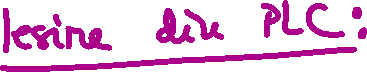 lesine din PLC: